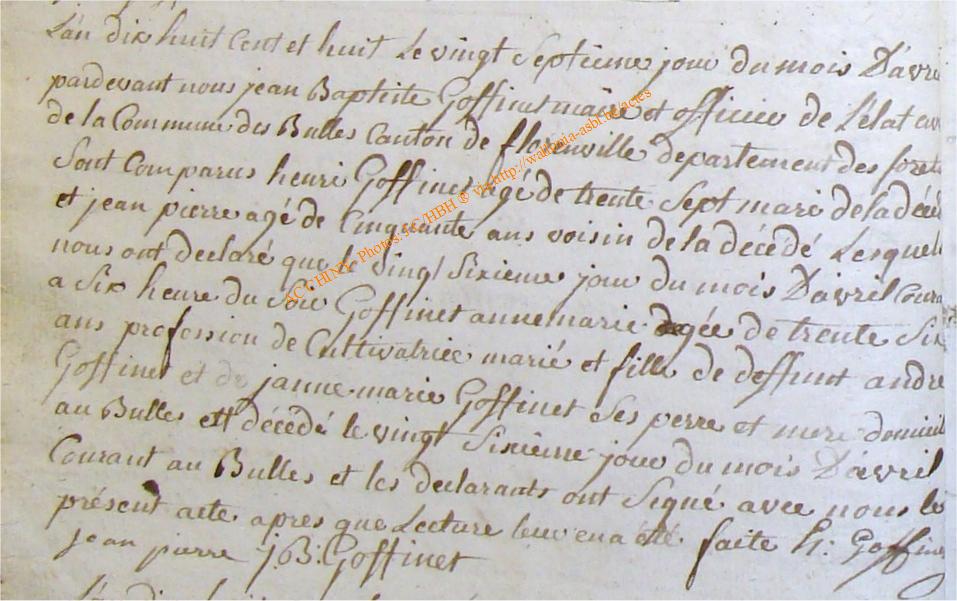 L'an dix huit Cent et huit Le vingt Septieme jour du mois D'avri
pardevant nous jean Baptiste Goffinet maire et officier de L'Etat civ
de la Commune des Bulles Canton de florenville departement des forets
Sont Comparus henri Goffinet agé de trente Sept mari de la décéd
et jean pierre agé de Cinquante ans voisin de la décédé Lesquel
nous ont declaré que le vingt Sixieme jour du mois D'avril Coura
a Six heure du Soir Goffinet anne marie agée de trente Six
ans profession de Cultivatrice marié et fille de deffunt andre
Goffinet et de janne marie Goffinet Ses perre et mere domicil
au Bulles est décédé le vingt Sixieme jour du mois D'avril
Courant au Bulles et les declarants ont Signé avec nous le
présent acte apres que Lecture leur en a été faite h: Goffine
jean pierre J:B: Goffinet
ACCHINY Photos: JC/HBH ® via http://walthinia-asbl.be/actes